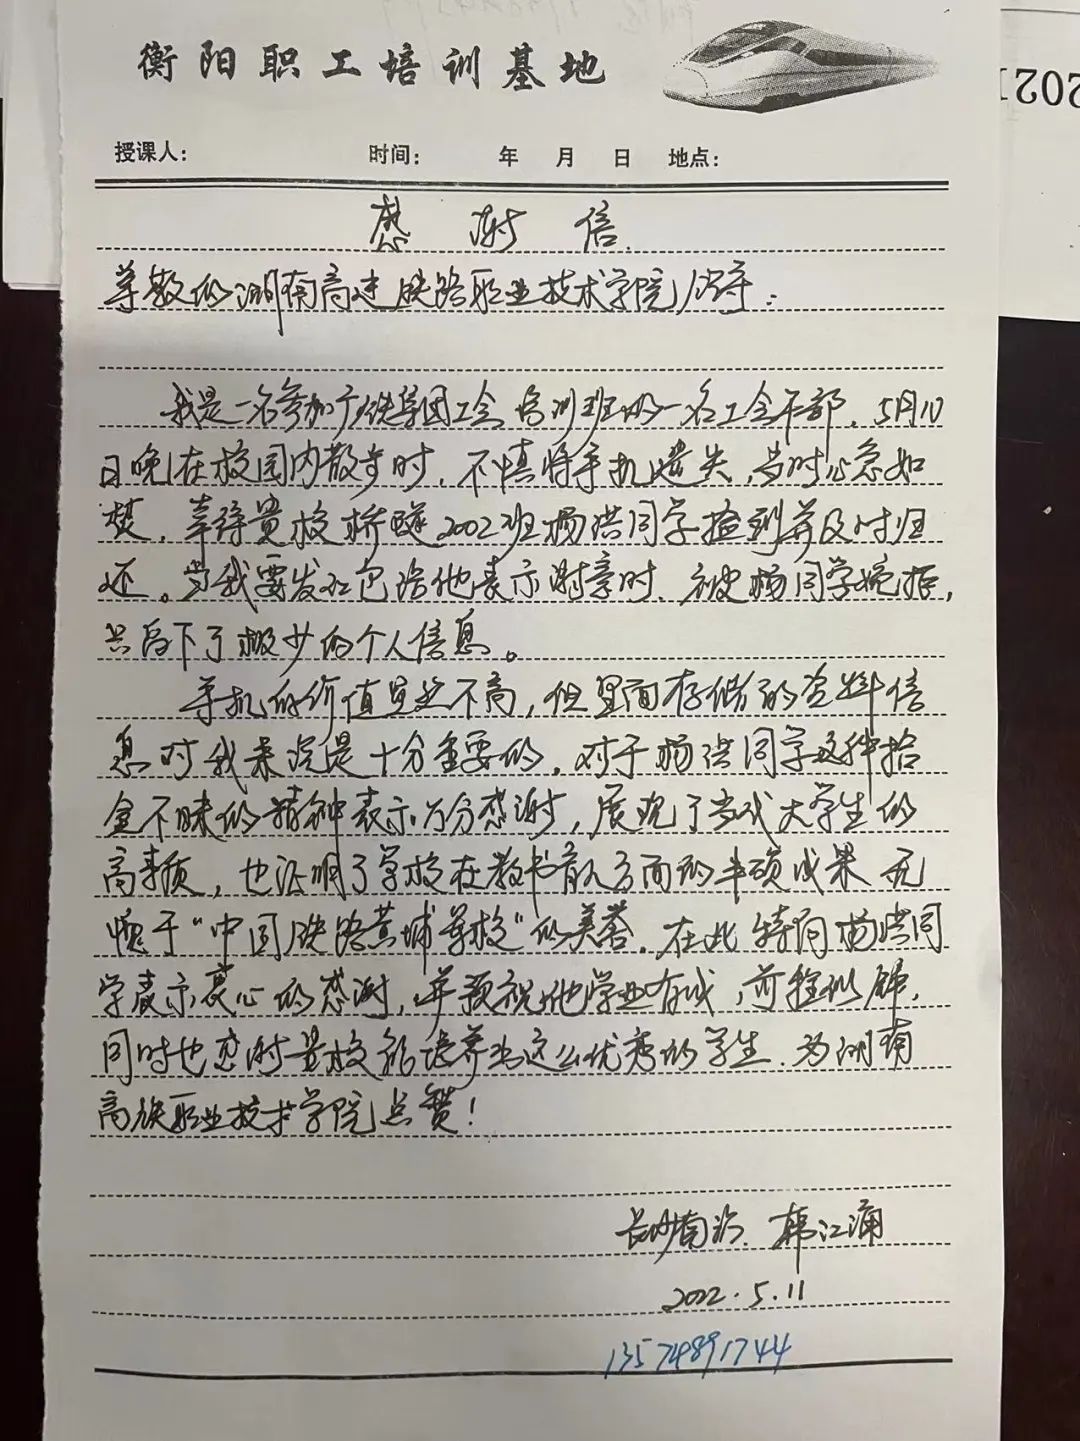 衡阳职工培训基地
授课人： 时间： 年 月 日 地点：
202
感谢信
尊敬的湖南高速铁路职业技术学院领导：
我是一名参加广铁集团工会培训班的一名工会干部，5月10
日晚在校园内散步时，不慎将手机遗失，当时心急如
焚，幸得贵校桥隧2002班杨洪同学捡到并及时归
还。当我要发红包给他表示谢意时，被杨同学婉拒，
只留下了极少的个人信息。
手机的价值虽然不高，但里面存储的资料信
息对我来说是十分重要的，对于杨洪同学这种拾
金不昧的精神表示万分感谢，展现了当代大学生的
高素质，也证明了学校在教书育人方面的丰硕成果 无
愧于“中国铁路黄埔军校”的美誉。在此特向杨洪同
学表示衷心的感谢，并预祝他学业有成，前程似锦，
同时也感谢贵校能培养出这么优秀的学生，为湖南
高铁职业技术学院点赞！
长沙南站 韩江涌
2022.5.11
13574891744